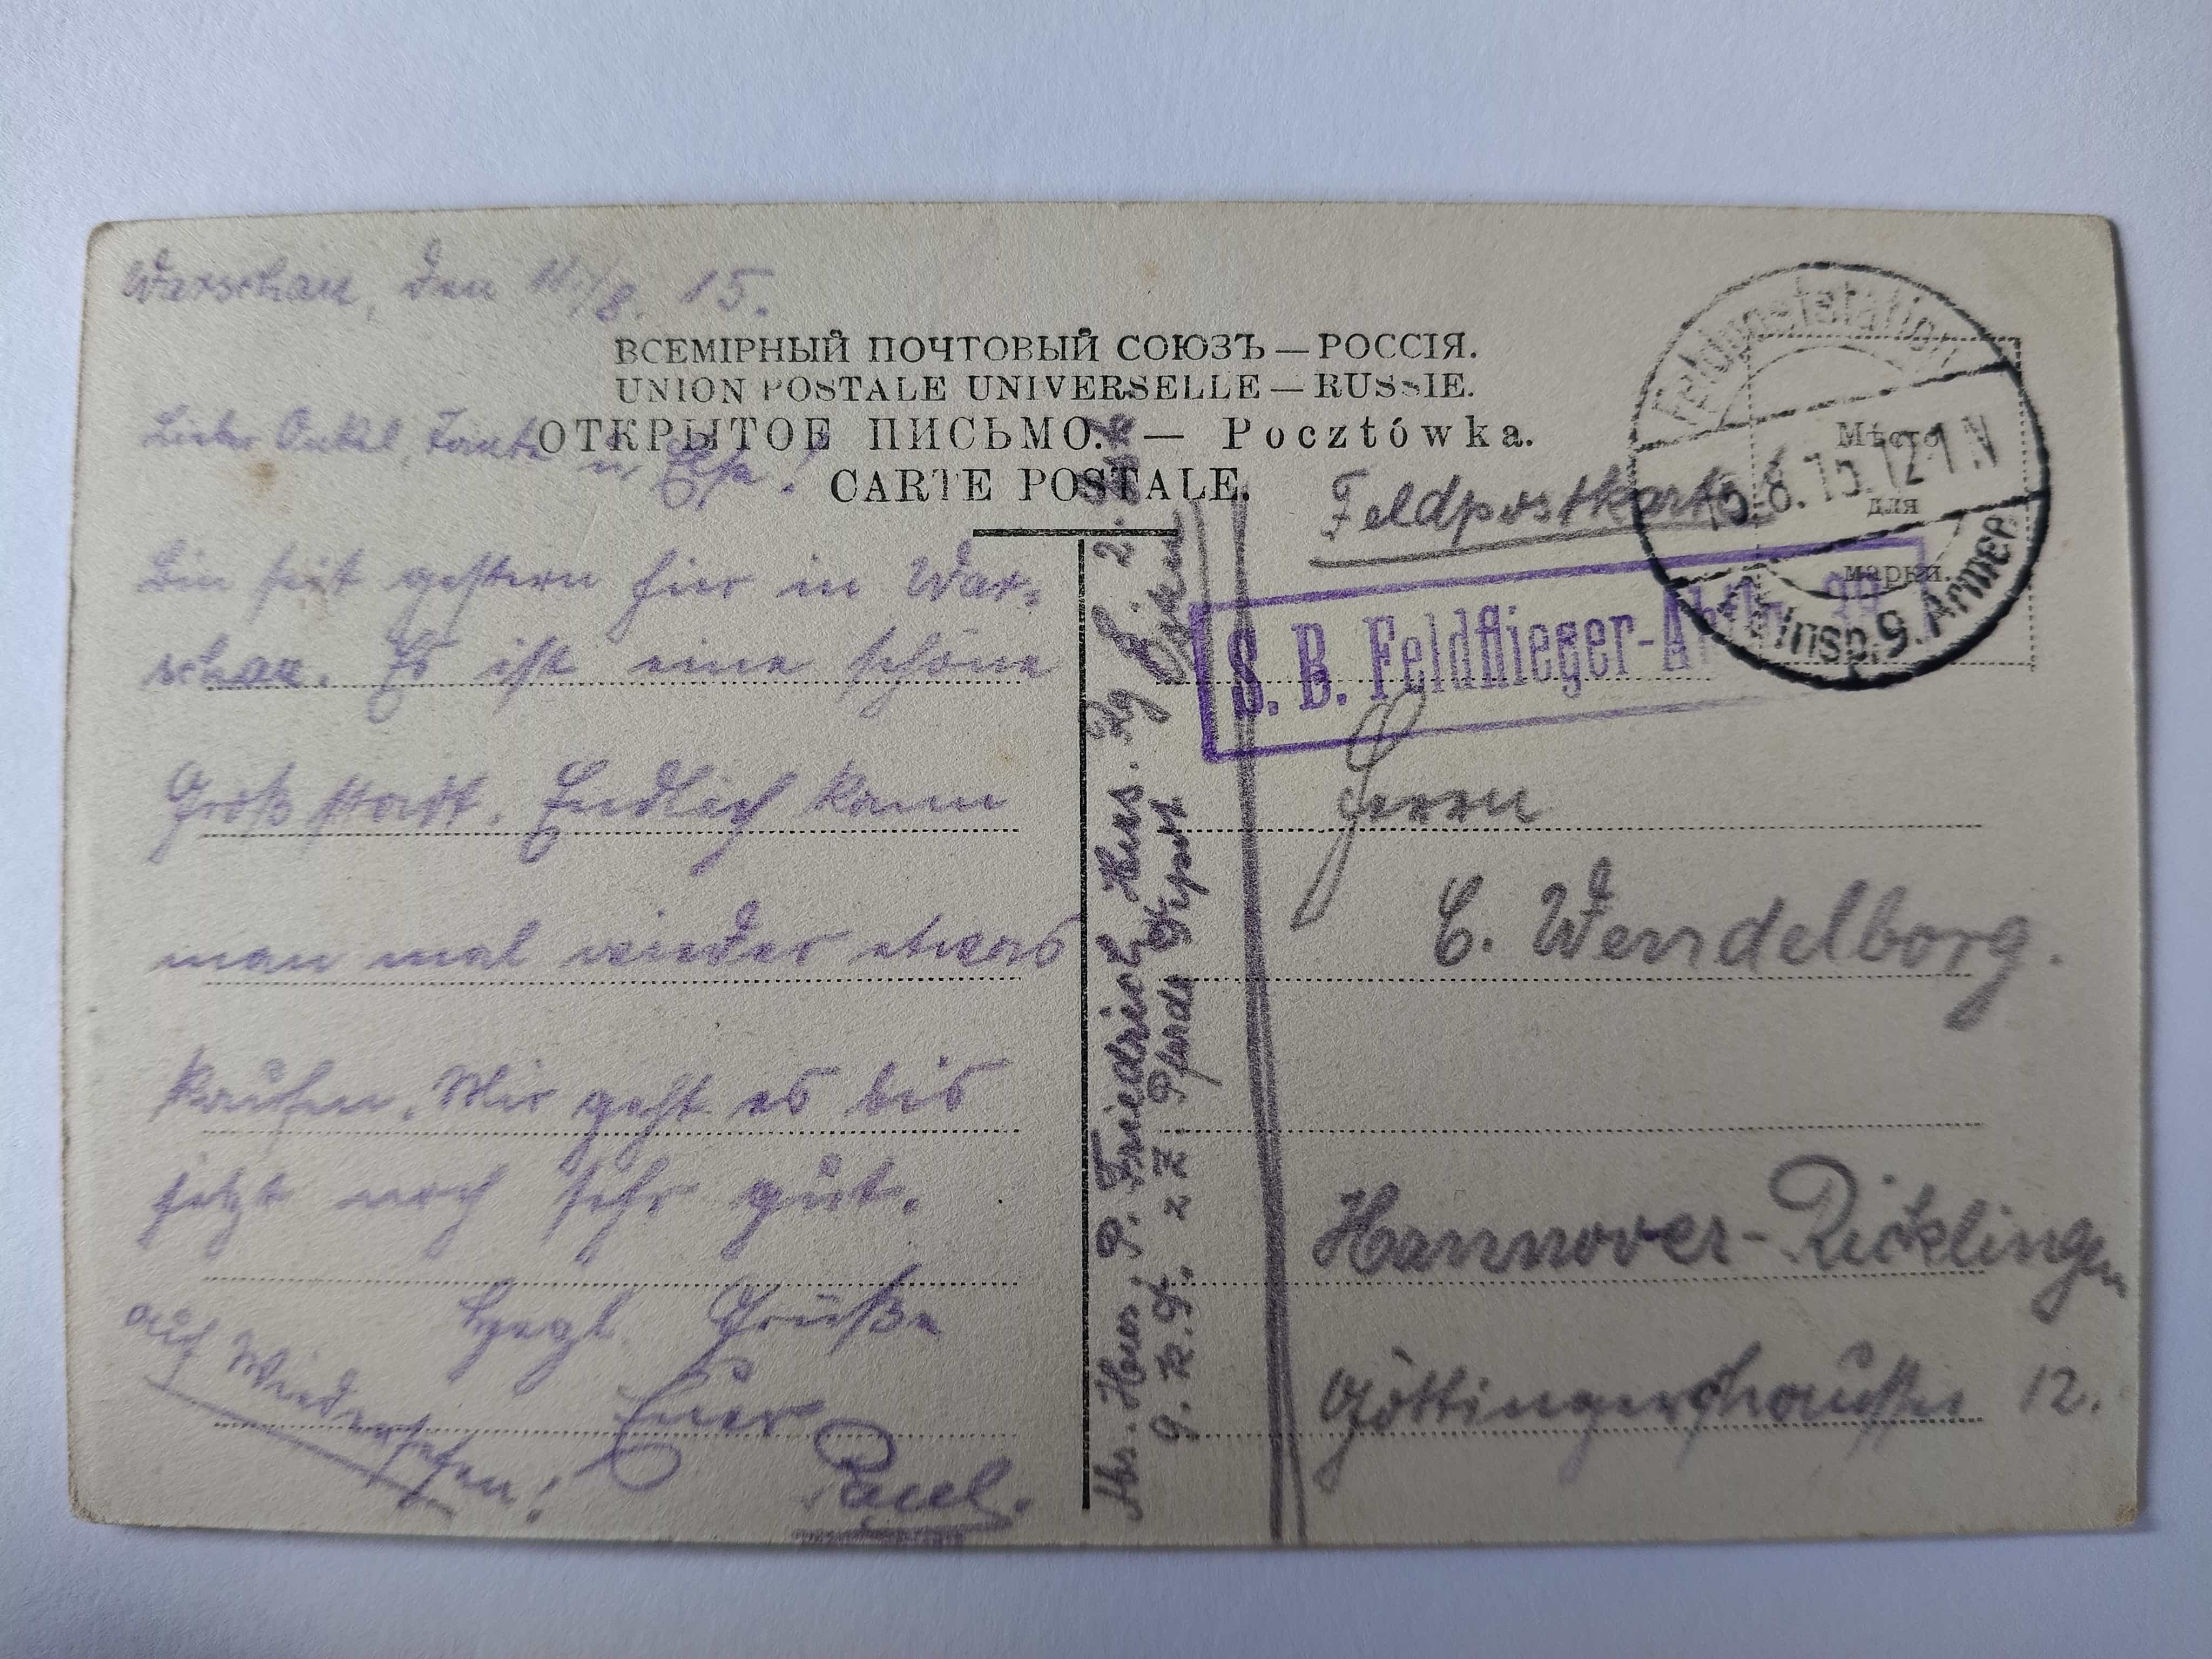 Warschau, den 11./8. 15.
ВСЕМІРНЫЙ ПОЧТОВЫЙ СОЮЗЪ — РОССІЯ.
UNION POSTALE UNIVERSELLE — RUSSIE.
ОТКРЫТОЕ ПИСЬМО. — Pocztówka.
CARTE POSTALE.
Lieber Onkel, Tante u.
Bin seit gestern hier in War-
schau. Es ist eine schöne
Großstadt. Endlich kann
man mal wieder etwas
kaufen. Mir geht es bis
jetzt noch sehr gut.
Herzl. Grüße
Euer
Paul.
auf Wiedersehen!
Abs. Hus. P. Friedrich Hus. Rg 2.
9. z.Z. Pferde
Feldpostkarte
Мѣсто
для
марки.
8.15. 12-1 N
Insp. 9. Armee
S. B. Feldflieger-Abtlg.
Herrn
C. Wendelborg.
Hannover-Ricklingen
Göttingerchaussee 12.